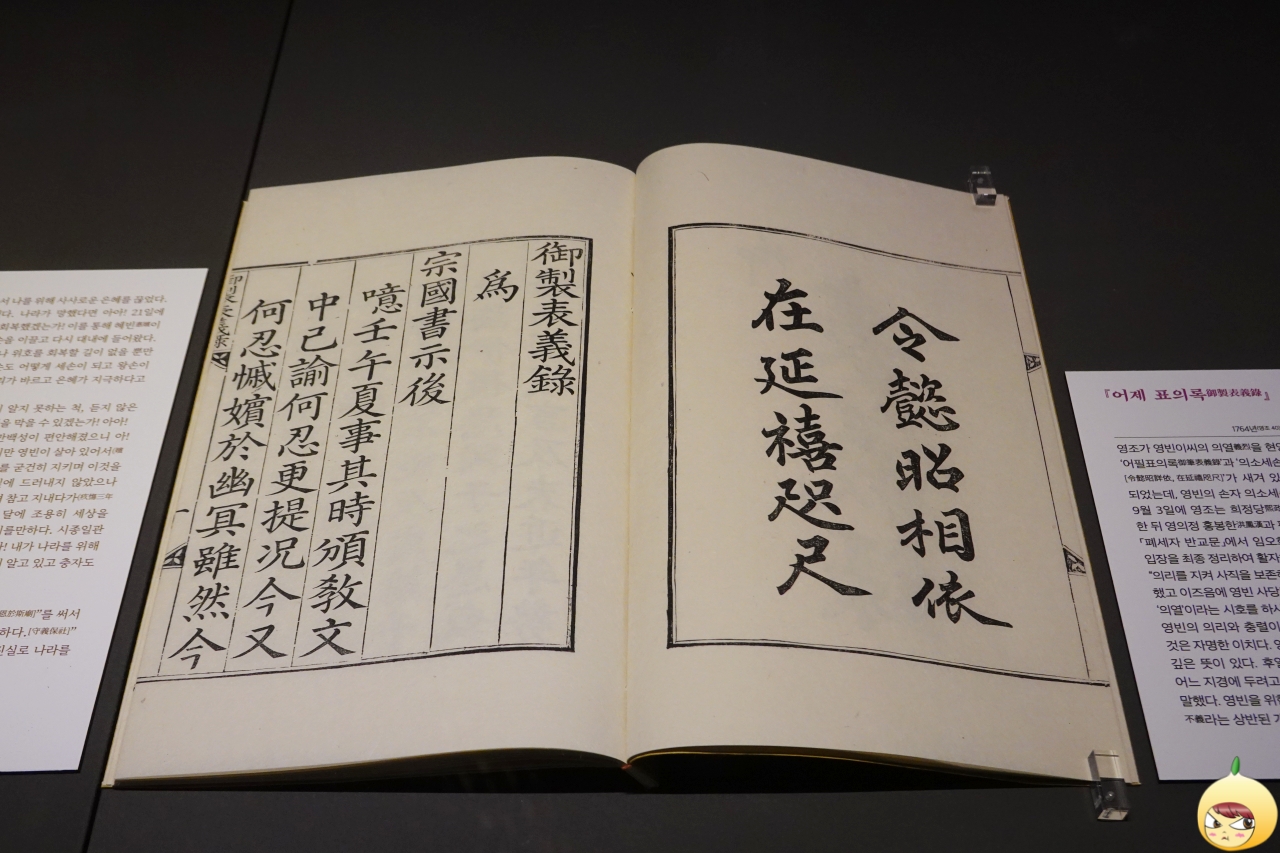 令懿昭相依
在延禧咫尺
御製表義錄
爲
宗國書示後
噫壬午夏事其時頒敎文
中己諭何忍更提况今又
何忍慽嬪於幽冥雖然今
서 나를 위해 사사로운 은혜를 끊었다.
다. 나라가 망했다면 아아! 21일에
회복했겠는가! 이를 통해 혜빈惠嬪이
손을 이끌고 다시 대내에 들어왔다.
나 위호를 회복할 길이 없을 뿐만
손도 어떻게 세손이 되고 왕손이
의가 바르고 은혜가 지극하다고
알지 못하는 척, 듣지 않은
을 막을 수 있겠는가! 아아!
만백성이 편안해졌으니 아!
지만 영빈이 살아 있어서
를 굳건히 지키며 이것을
에 드러내지 않았으나
참고 지내다가
달에 조용히 세상을
를만하다. 시종일관
! 내가 나라를 위해
알고 있고 충자도
”를 써서
하다.[守義保社]”
진실로 나라를
『어제 표의록御製表義錄』
1764년(영조 40
영조가 영빈이씨의 의열義烈을 현
'어필표의록御筆表義錄'과 '의소세손
[令懿昭相依, 在延禧咫尺]'가 새겨 있
되었는데, 영빈의 손자 의소세
9월 3일에 영조는 희정당熙政
한 뒤 영의정 홍봉한洪鳳漢과
「폐세자 반교문」에서 임오
입장을 최종 정리하여 활자
“의리를 지켜 사직을 보존한
했고 이즈음에 영빈 사당
'의열'이라는 시호를 하사
영빈의 의리와 충렬이
것은 자명한 이치다.
깊은 뜻이 있다. 후일
어느 지경에 두려고
말했다. 영빈을 위한
不義라는 상반된